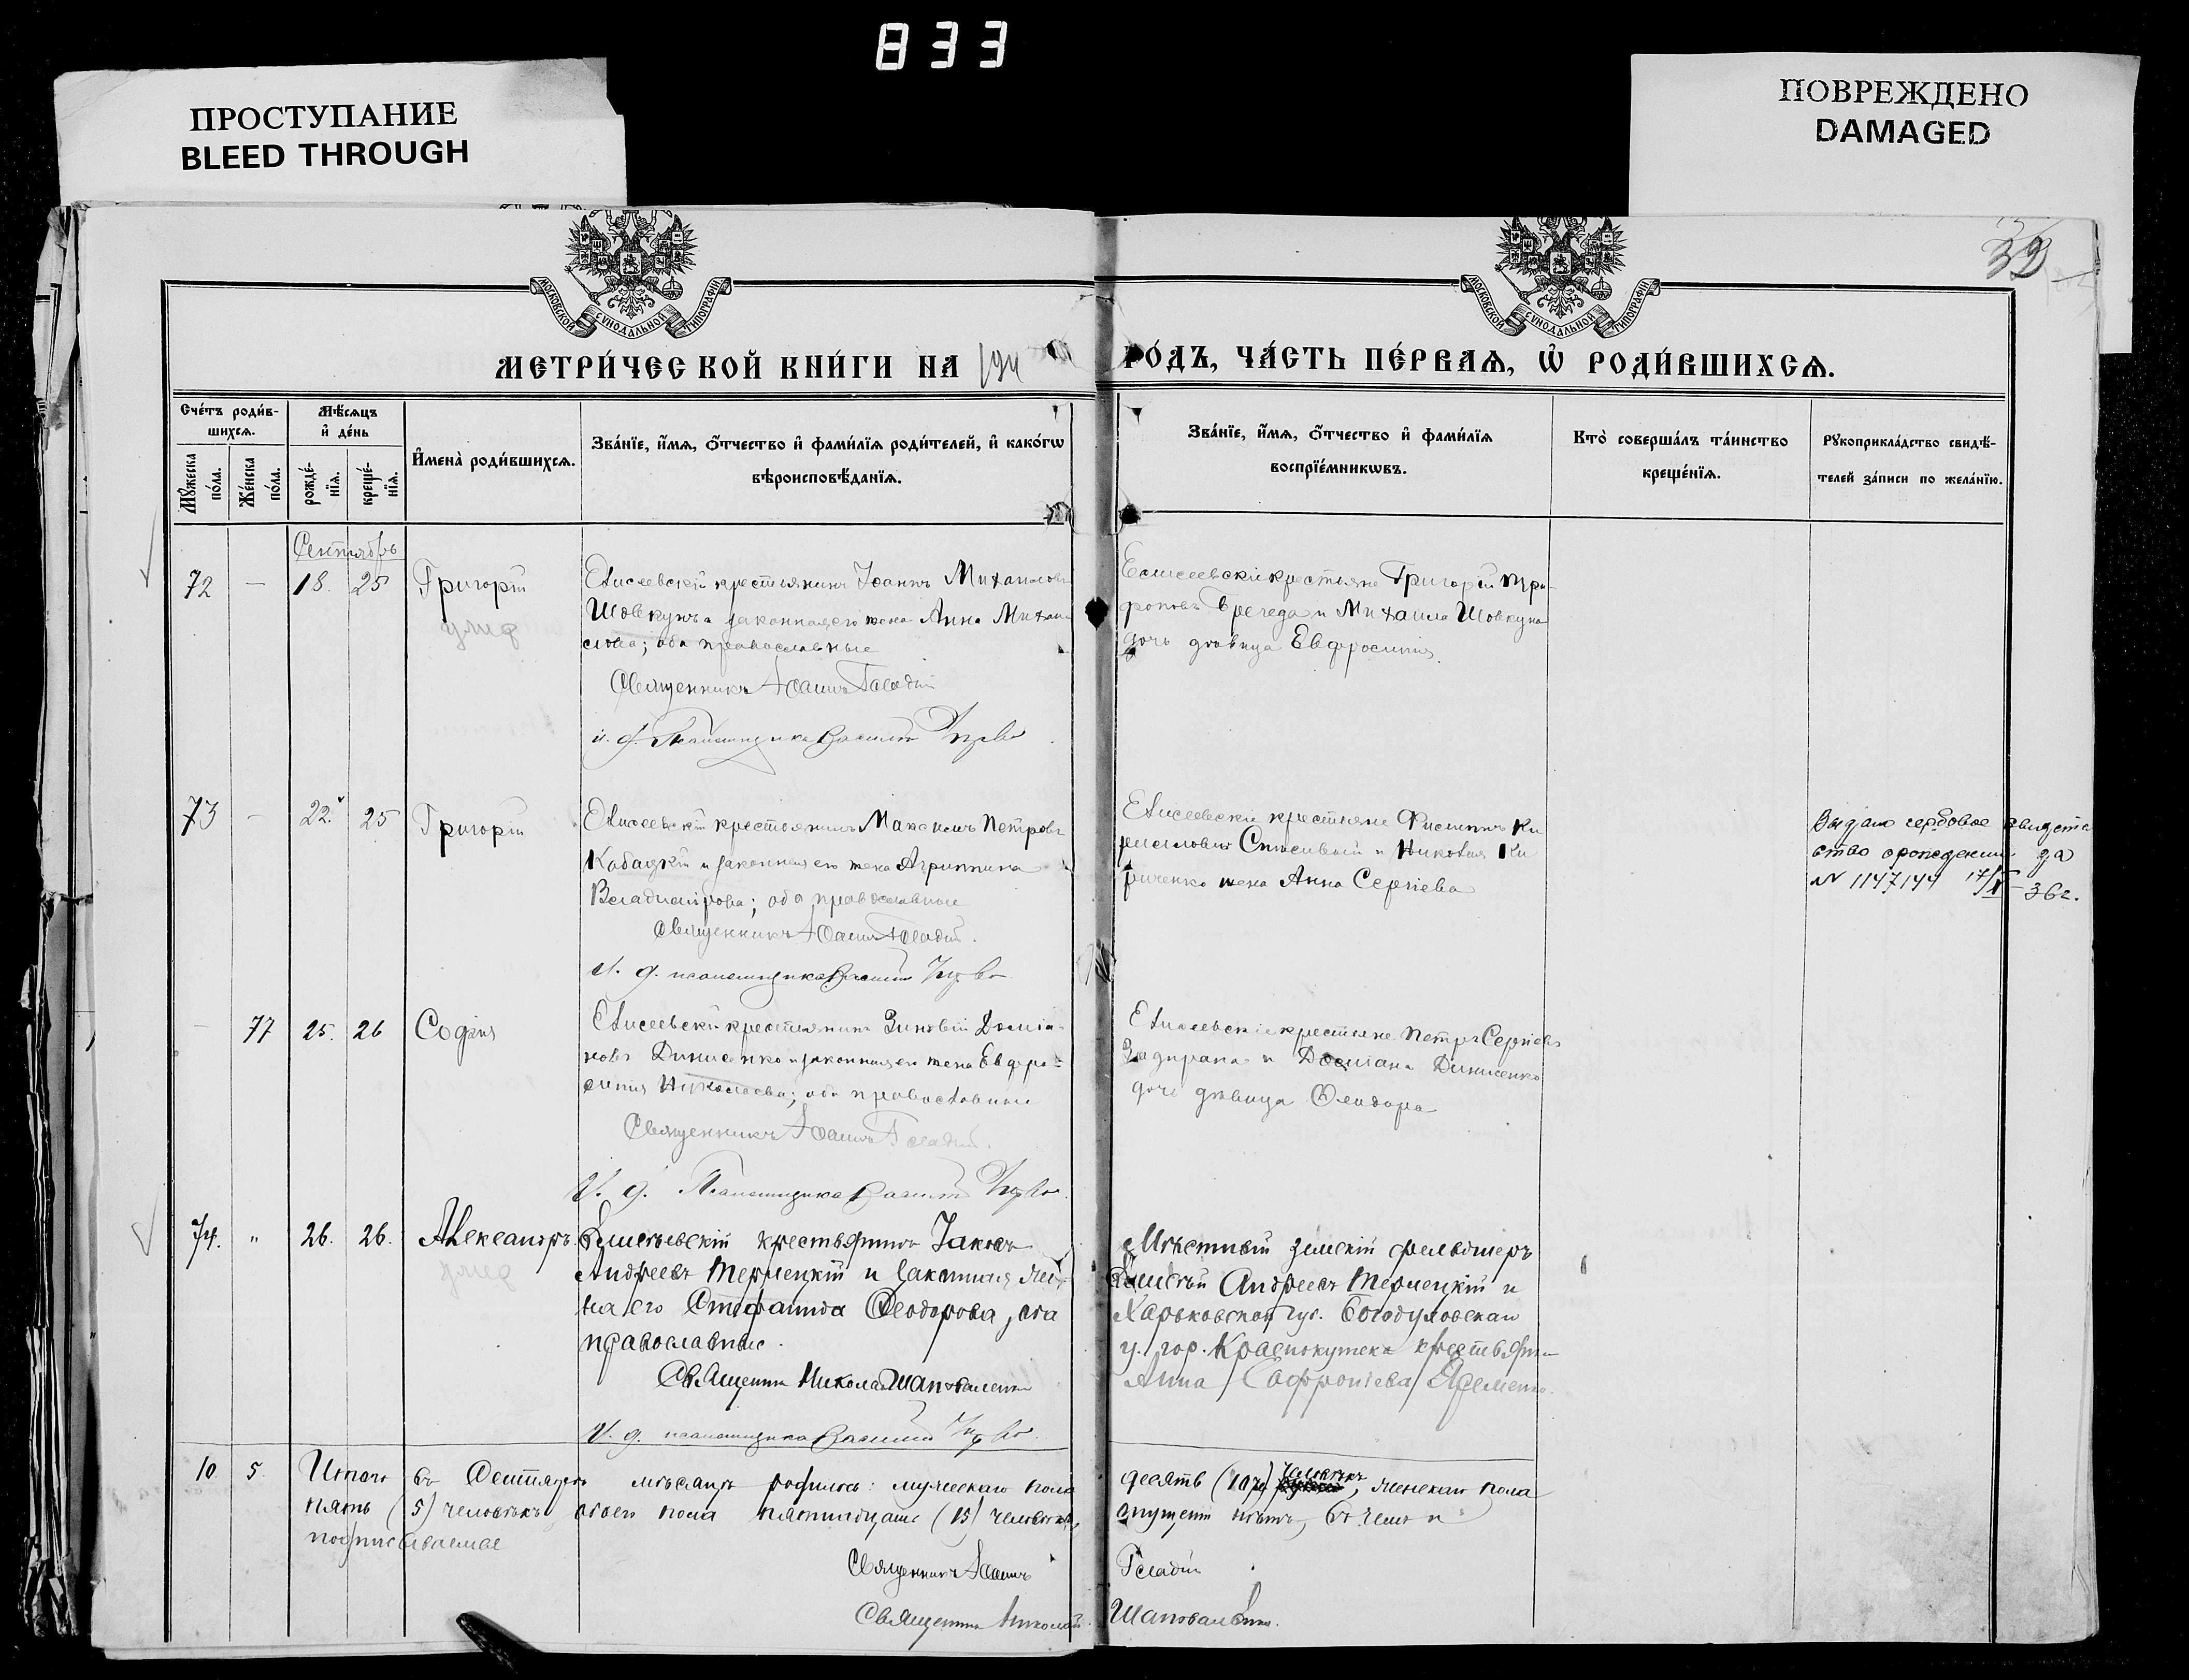 833
ПРОСТУПАНИЕ
BLEED THROUGH
ПОВРЕЖДЕНО
DAMAGED
39
МОСКОВСКОЙ СУНОДАЛЬНОЙ ТИПОГРАФІИ
МОСКОВСКОЙ СУНОДАЛЬНОЙ ТИПОГРАФІИ
МЕТРИ́ЧЕСКОЙ КНИ́ГИ НА 191
ГО́ДЪ, ЧА́СТЬ ПЕ́РВАѦ, Ѿ РОДИ́ВШИХСѦ.
Сче́тъ роди́в-
шихсѧ.
Мꙋ́жеска по́ла.
Же́нска по́ла.
Мѣ́сѧцъ
и҆ де́нь
рожде́-
нїѧ.
креще́-
нїѧ.
И҆мена̀ роди́вшихсѧ.
Зва́нїе, и҆́мѧ, ѻ҆́тчество и҆ фами́лїѧ роди́телей, и҆ како́гѡ
вѣроисповѣ́данїѧ.
Зва́нїе, и҆́мѧ, ѻ҆́тчество и҆ фами́лїѧ
воспрїе́мникѡвъ.
Кто̀ соверша́лъ та́инство
креще́нїѧ.
Рꙋкоприкла́дство свидѣ́-
телей за́писи по жела́нїю.
Сентябрь
72 — 18. 25 Григорій
умер
Елисеевскій крестьянинъ Іоаннъ Михаиловъ
Шовкунъ и законная его жена Анна Михаи-
лова; оба православные
Священникъ Іоаннъ Гладкій
и. д. Псаломщика Василій
Елисеевскіе крестьяне Григорій Три-
фоновъ и Михаила Шовкуна
дочь дѣвица Евфросинія.
73 — 22. 25 Григорій
Елисеевскій крестьянинъ Максимъ Петровъ
Кабацкій и законная его жена Агриппина
Владимірова; оба православные
Священникъ Іоаннъ Гладкій.
И. д. псаломщика Василій
Елисеевскіе крестьяне Филиппъ Ки
рилловъ Спесивый и Николая Ки
риченко жена Анна Сергіева
Выдано гербовое свидетель
ство о рождении за
N 1147144 17/V – 36 г.
— 77 25. 26 Софія
Елисеевскій крестьянинъ Зиновій Доміа-
новъ Динисенко и законная его жена Евфро-
синія Николаева; оба православные
Священникъ Іоаннъ Гладкій.
И. д. Псаломщика Василій
Елисеевскіе крестьяне Петръ Сергіевъ
Задирака и Доміана Динисенко
дочь дѣвица Ѳеодора
74. " 26. 26. Александръ
умер
Елисѣевскій крестьянинъ Іаковъ
Андреевъ Тернецкій и законная же-
на его Стефанида Ѳеодорова, оба
православные.
Священникъ Николай Шаповаленко
И. д. псаломщика Василій
Мѣстный земскій фельдшеръ
Андреевъ Тернецкій и
Харьковской губ. Богодуховскаго
у. гор. Краснокутска крестьянка
Анна Софроніева Яременко.
10 5 Итого въ Сентябрѣ мѣсяцѣ родилось: мужескаго пола
десять (10) человѣкъ, женскаго пола
пять (5) человѣкъ обоего пола пятнадцать (15) человѣкъ,
пропущенныхъ нѣтъ, въ чемъ и
подписываемся
Священникъ Іоаннъ Гладкій
Священникъ Николай Шаповаленко.